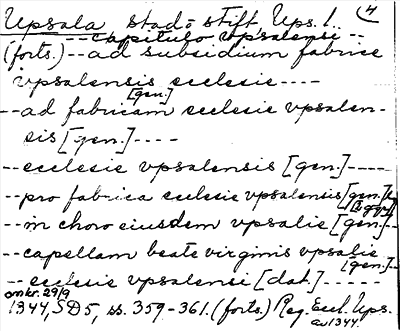 Upsala stad o stift Ups. l. (4
-- capitulo vpsalensi --
(forts.) -- ad subsidium fabrice
vpsalensis ecclesie ----
-- ad fabricam [gen.] ecclesie vpsalen-
sis [gen.] ----
-- ecclesie vpsalensis [gen.] ----
-- pro fabrica ecclesie vpsalensis [gen.]
-- in choro eiusdem vpsalie [gen.] --
-- capellam beate virginis vpsalie
[gen.] --
-- ecclesie vpsalensi [dat.] -----
omkr. 29/9
1344, SD 5, ss. 359-361. (forts.) Reg. Eccl. Ups.
av 1344.